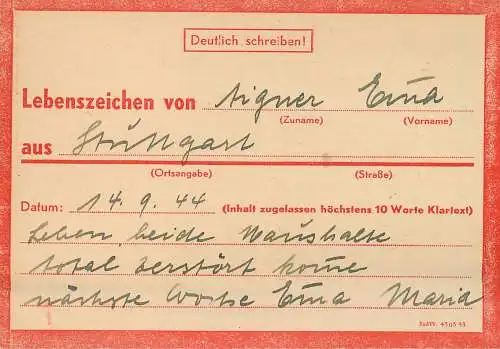 Deutlich schreiben!
Lebenszeichen von Aigner Erna
(Zuname) (Vorname)
aus Stuttgart
(Ortsangabe) (Straße)
Datum: 14. 9. 44 (Inhalt zugelassen höchstens 10 Worte Klartext)
Leben, beide Haushalte
total zerstört komme
nächste Woche Erna Maria